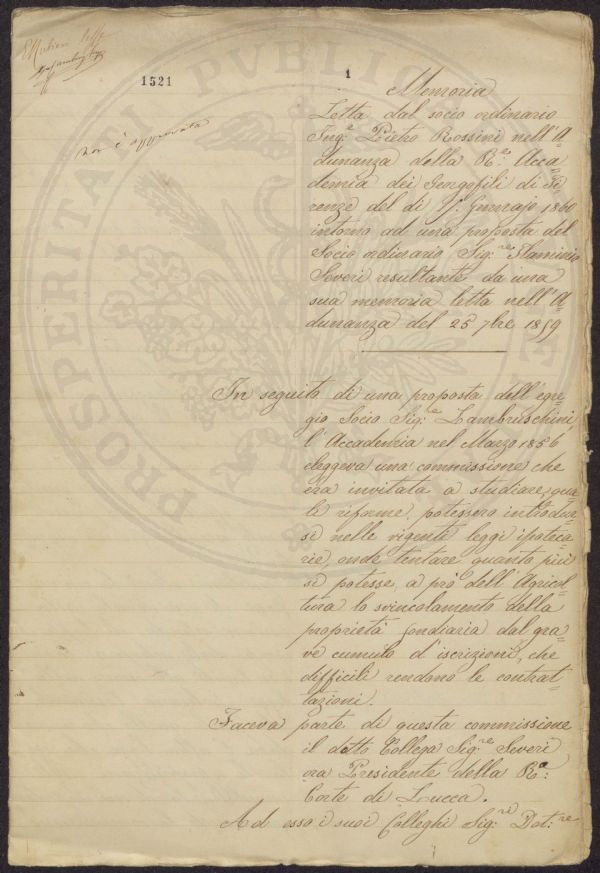 1521
1
non è approvata
PROSPERITATI PUBLICAE
Memoria
Letta dal socio ordinario
Ing.e Pietro Rossini nell'A=
dunanza della R.e Acca
demia dei Georgofili di Fi=
renze del dì Gennajo 1860
intorno ad una proposta del
Socio ordinario Sig.re Flaminio
Severi resultante da una
sua memoria letta nell'A=
dunanza del 25 7bre 1859
In seguito di una proposta dell'egre=
gio Socio Sig.re Lambruschini,
l'Accademia nel Marzo 1856
eleggeva una commissione che
era invitata a studiare, qua=
li riforme potessero introdur=
si nelle vigenti leggi ipoteca=
rie, onde tentare quanto più
si potesse, a prò dell'Agricol=
tura lo svincolamento della
proprietà fondiaria dal gra=
ve cumulo d'iscrizioni, che
difficili rendono le contrat=
tazioni.
Faceva parte di questa commissione
il dotto Collega Sig.re Severi
ora Presidente della R.a
Corte di Lucca.
Ad esso i suoi Colleghi Sig.ri Dot.re